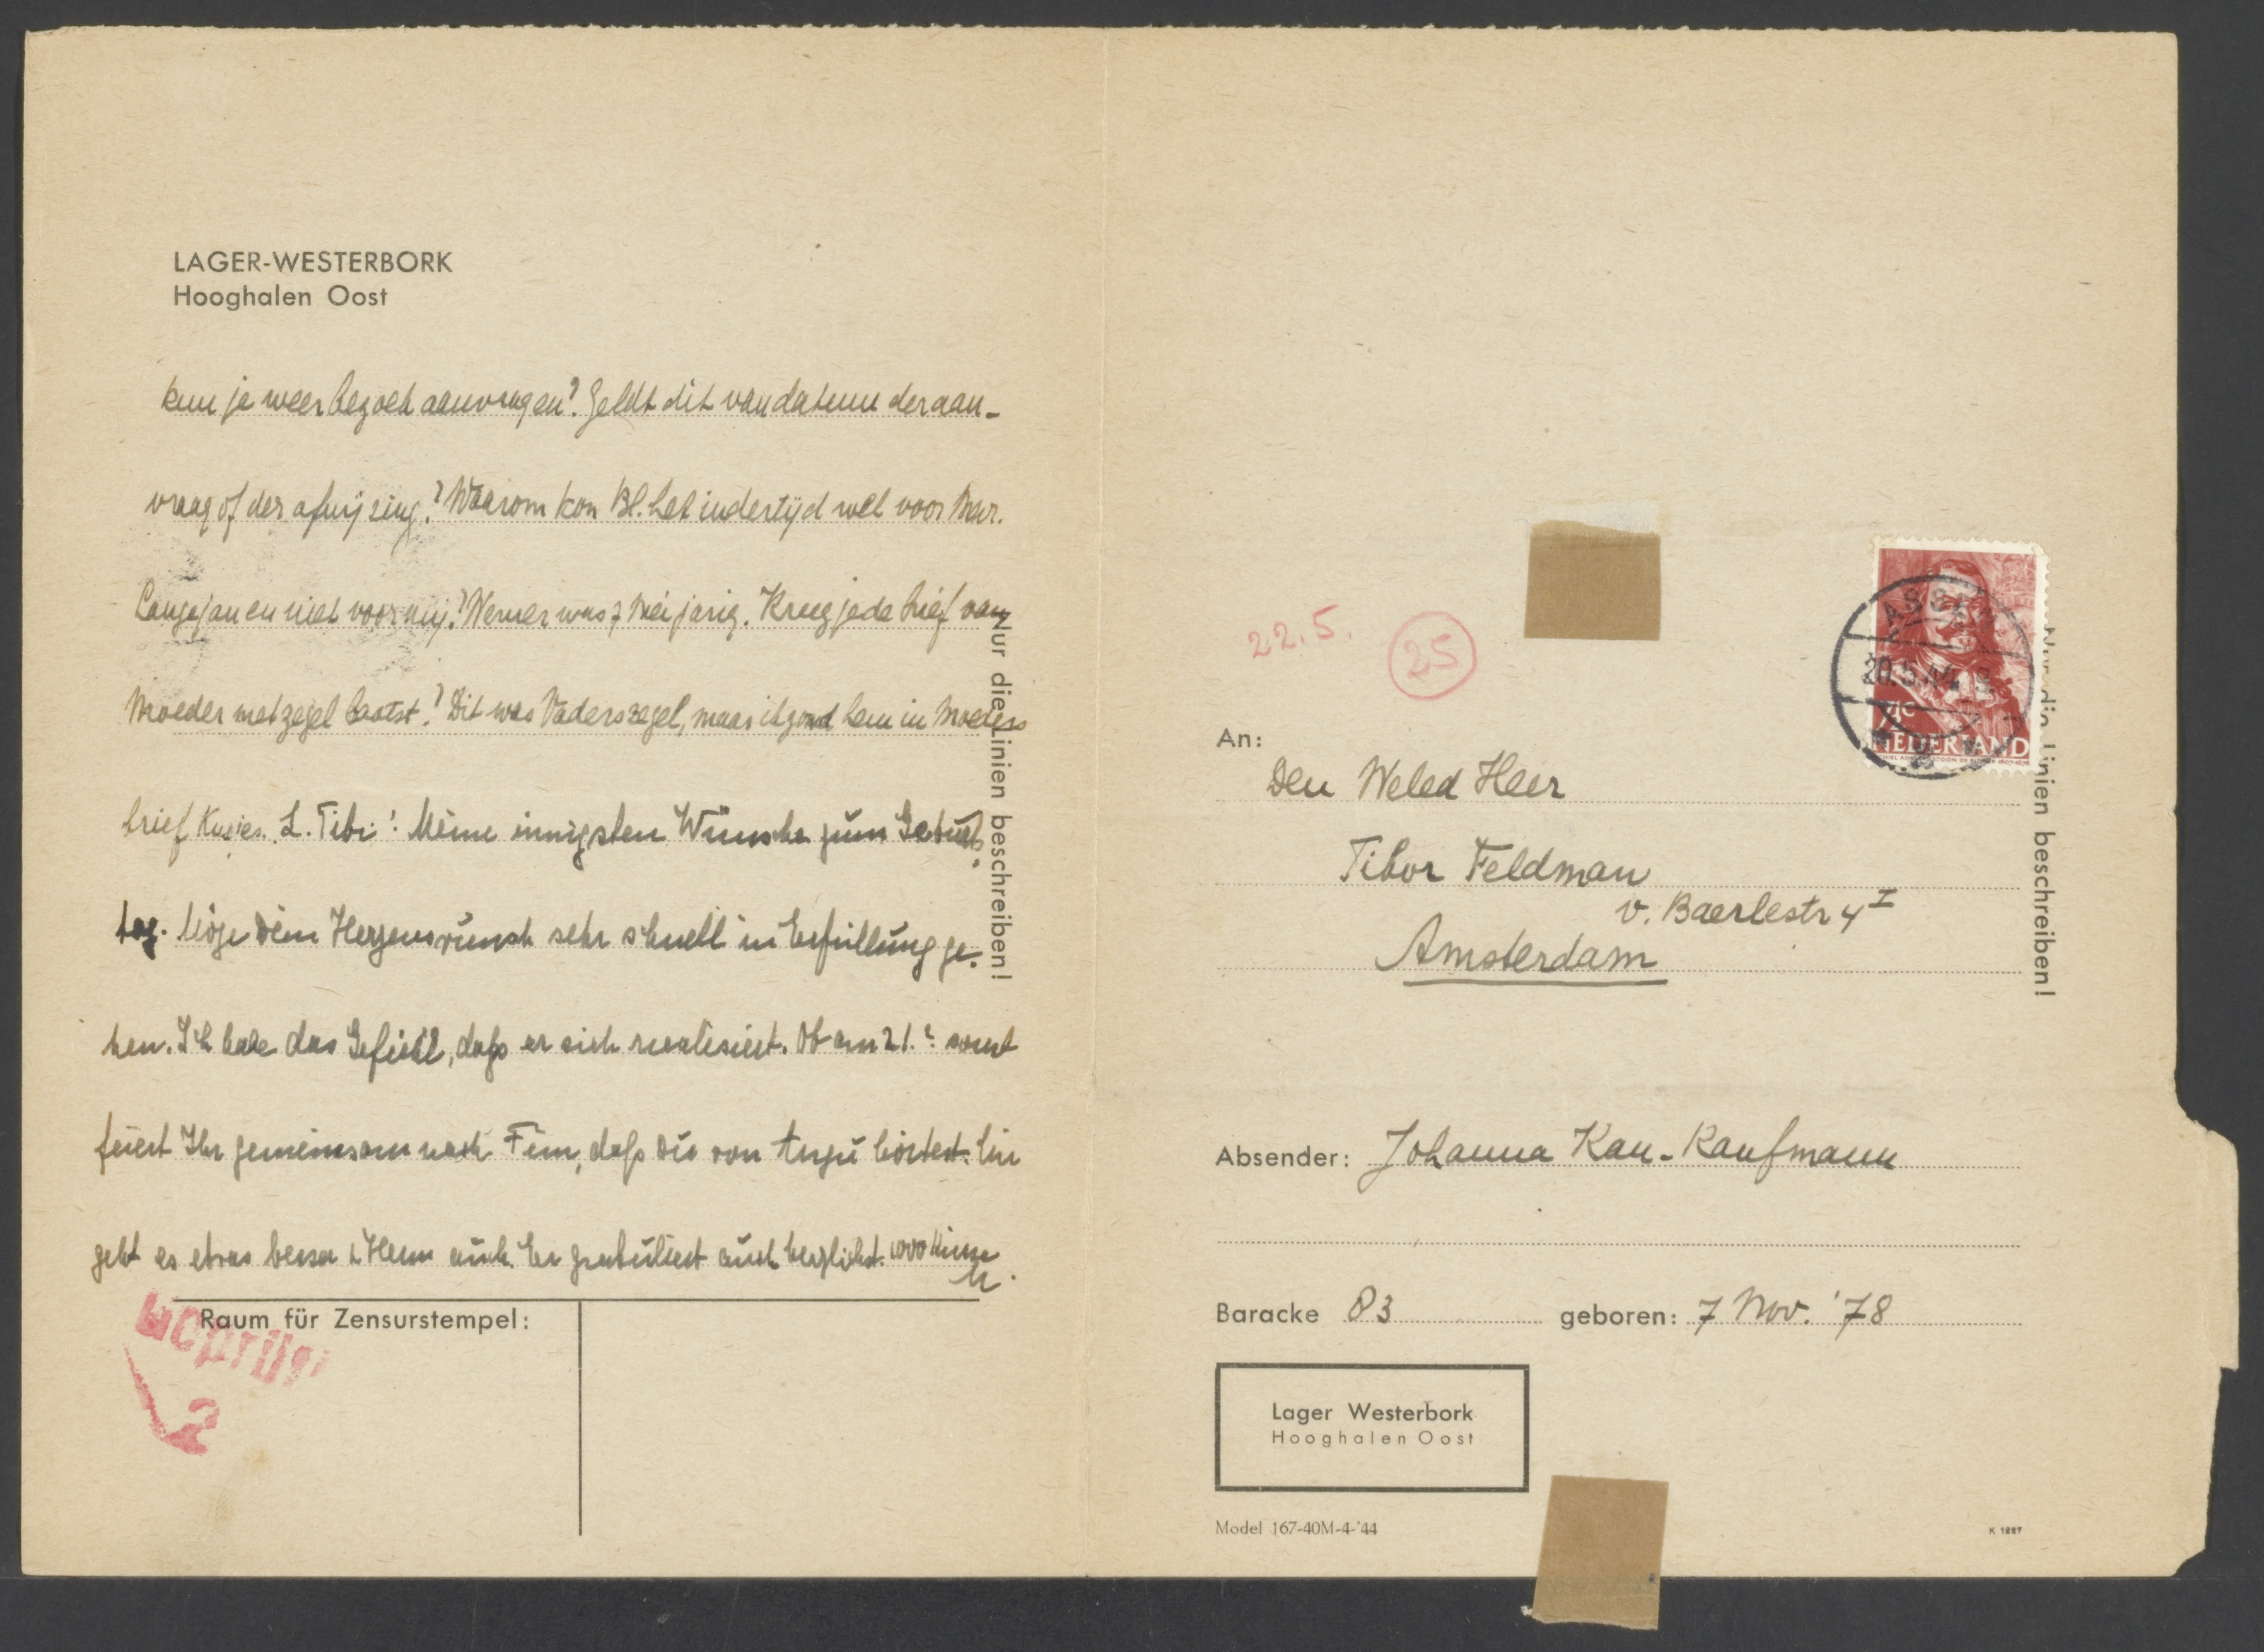 LAGER-WESTERBORK
Hooghalen Oost
kun je weer bezoek aanvragen? Geldt dit van datum der aan-
vraag of der afwijzing? Waarom kon Bl. het indertijd wel voor Mar.
Langejan en niet voor mij? Werner was 7 Mei jarig. Kreeg je de brief van
Moeder met zegel laatst? Dit was Vaders zegel, maar ik zond hem in Moeders
brief Kusjes. L. Tibi! Meine innigsten Wünsche zum Geburts-
tag. Möge Dein Herzenswunsch sehr schnell in Erfüllung ge-
hen. Ich habe das Gefühl, dafs er sich realisiert. Ob am 21.? sonst
feiert Ihr gemeinsam nach. Fein, dafs Du von hörtest.
geht es etwas besser auch. Er gratuliert auch herzlichst. 1000 Küsse
M.
Nur die Linien beschreiben!
Raum für Zensurstempel:
Geprüft
2
22.5.
25
ASSEN
20.5.44
7½c
NEDERLAND
An:
Den Weled Heer
Tibor Feldman
v. Baerlestr 4 I
Amsterdam
Nur die Linien beschreiben!
Absender: Johanna Kan-Kaufmann
Baracke 83 geboren: 7 Nov. '78
Lager Westerbork
Hooghalen Oost
Model 167-40M-4-'44
K 1227